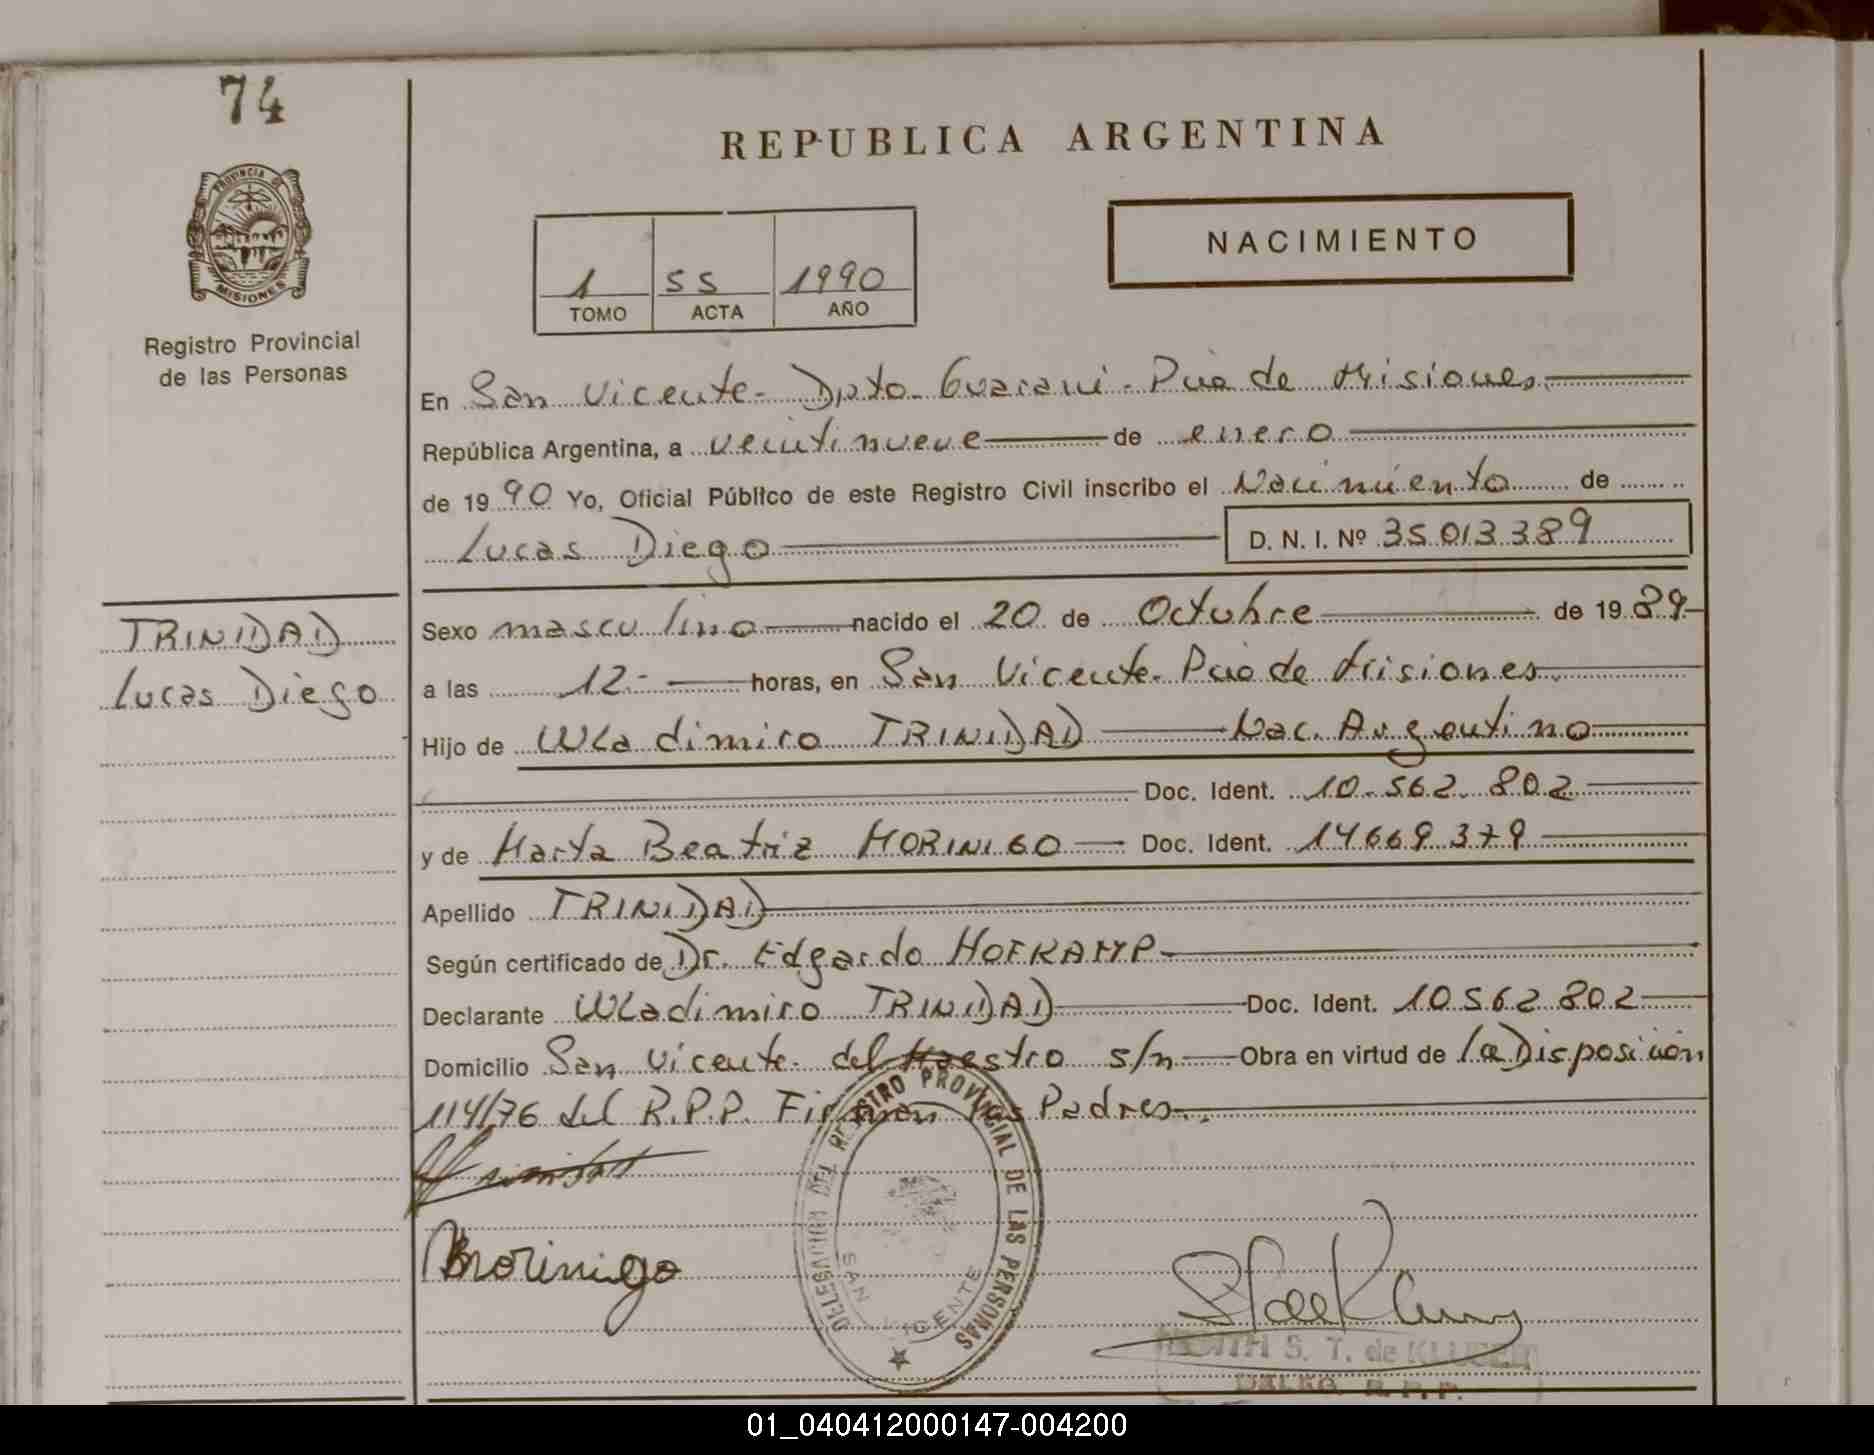 74
PROVINCIA DE
MISIONES
Registro Provincial
de las Personas
REPUBLICA ARGENTINA
NACIMIENTO
1 55 1990
TOMO ACTA AÑO
En San Vicente- Dpto. Guarani- Pcia de Misiones.
República Argentina, a veintinueve de enero
de 1990 Yo, Oficial Público de este Registro Civil inscribo el Nacimiento de
Lucas Diego D. N. I. Nº 35.013.389
TRINIDAD
Lucas Diego
Sexo masculino nacido el 20 de Octubre de 1989
a las 12.- horas, en San Vicente. Pcia de Misiones.
Hijo de Wladimiro TRINIDAD Nac. Argentino
Doc. Ident. 10.562.802
y de Marta Beatriz MORINIGO Doc. Ident. 14669.379
Apellido TRINIDAD
Según certificado de Dr. Edgardo HOFKAMP
Declarante Wladimiro TRINIDAD Doc. Ident. 10.562.802
Domicilio San Vicente. del Maestro s/n Obra en virtud de la Disposición
114/76 del R.P.P. Firman los Padres.
Morinigo
DELEGACION DEL REGISTRO PROVINCIAL DE LAS PERSONAS
SAN VICENTE
S. T. de
R. P. P.
01_040412000147-004200